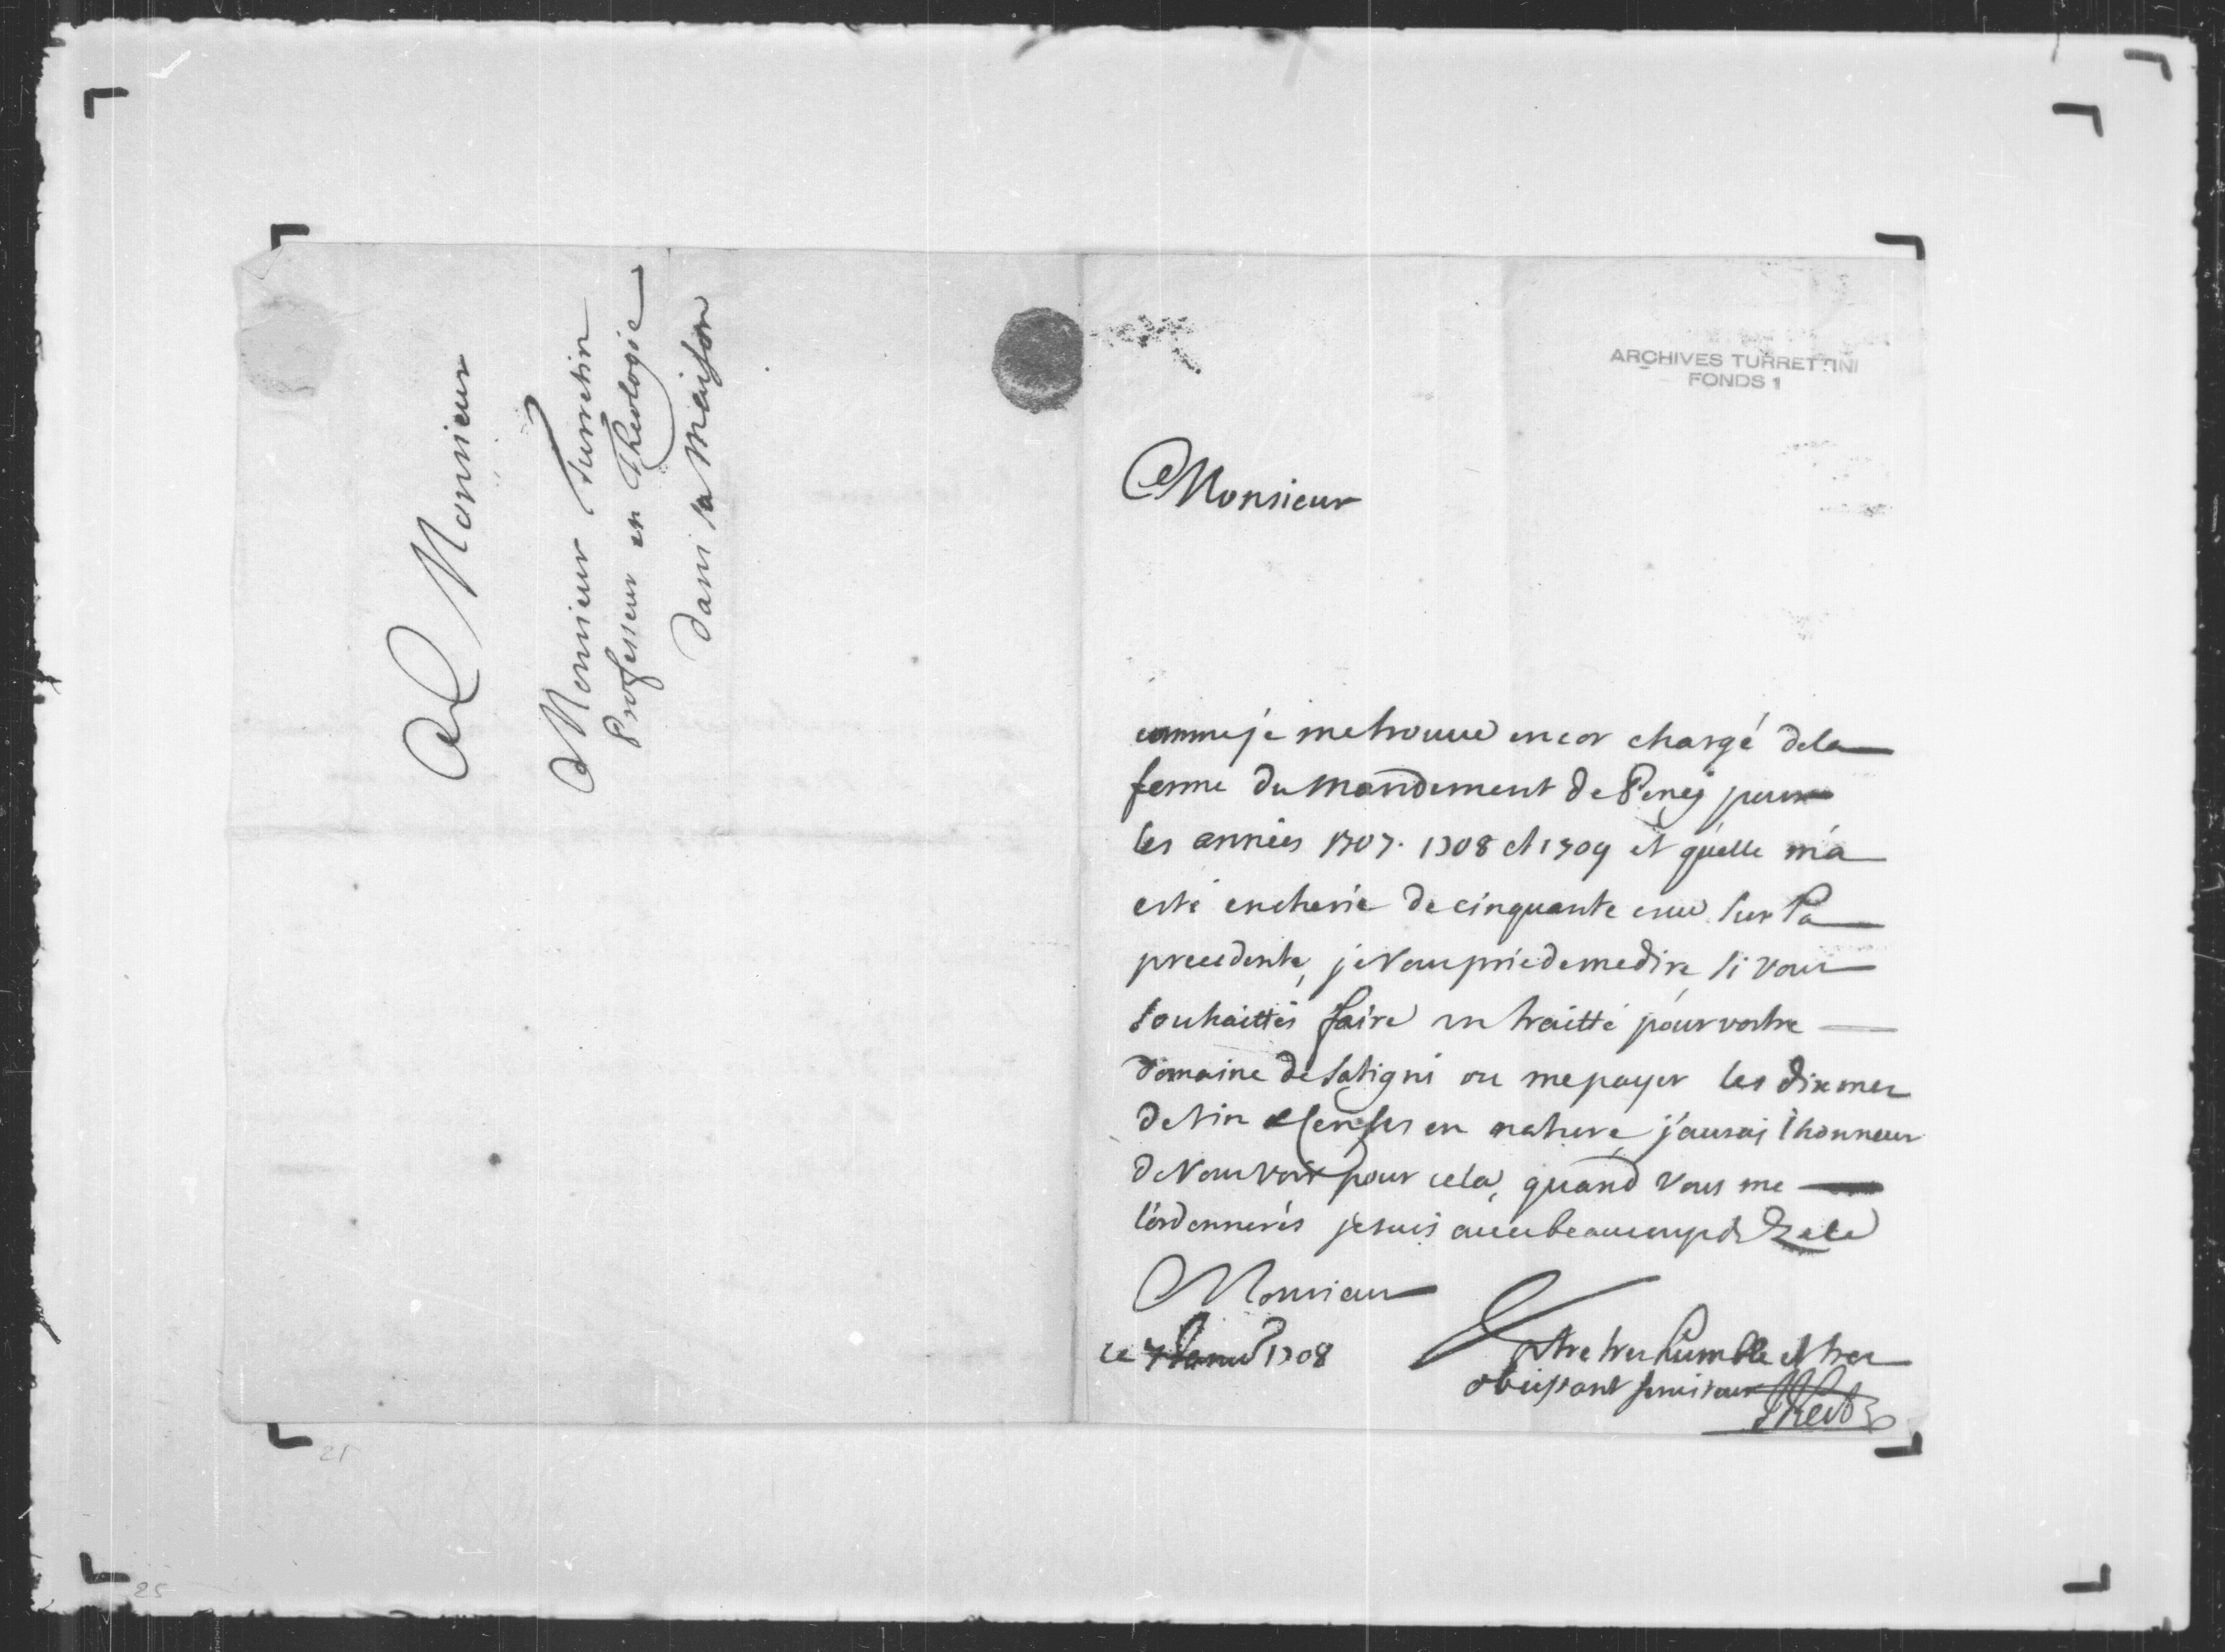 A Monsieur
Monsieur Turretin
Professeur en Theologie
dans sa Maison
ARCHIVES TURRETTINI
FONDS 1
Monsieur
comme je me trouve encor chargé de la
ferme du Mandement de Peney pour
les années 1707. 1708 et 1709 et qu'elle m'a
esté encherie de cinquante escu sur la
precedente, je vous prie de me dire, si vous
souhaittés faire un traitté pour vostre
domaine de Satigni ou me payer les dixmes
de vin et censes en nature, j'aurai l'honneur
de vous voir pour cela, quand vous me
l'ordonnerés je suis avec beaucoup de Zele
Monsieur
Vostre tres humble et tres
le 7 1708
obeissant serviteur
21
25